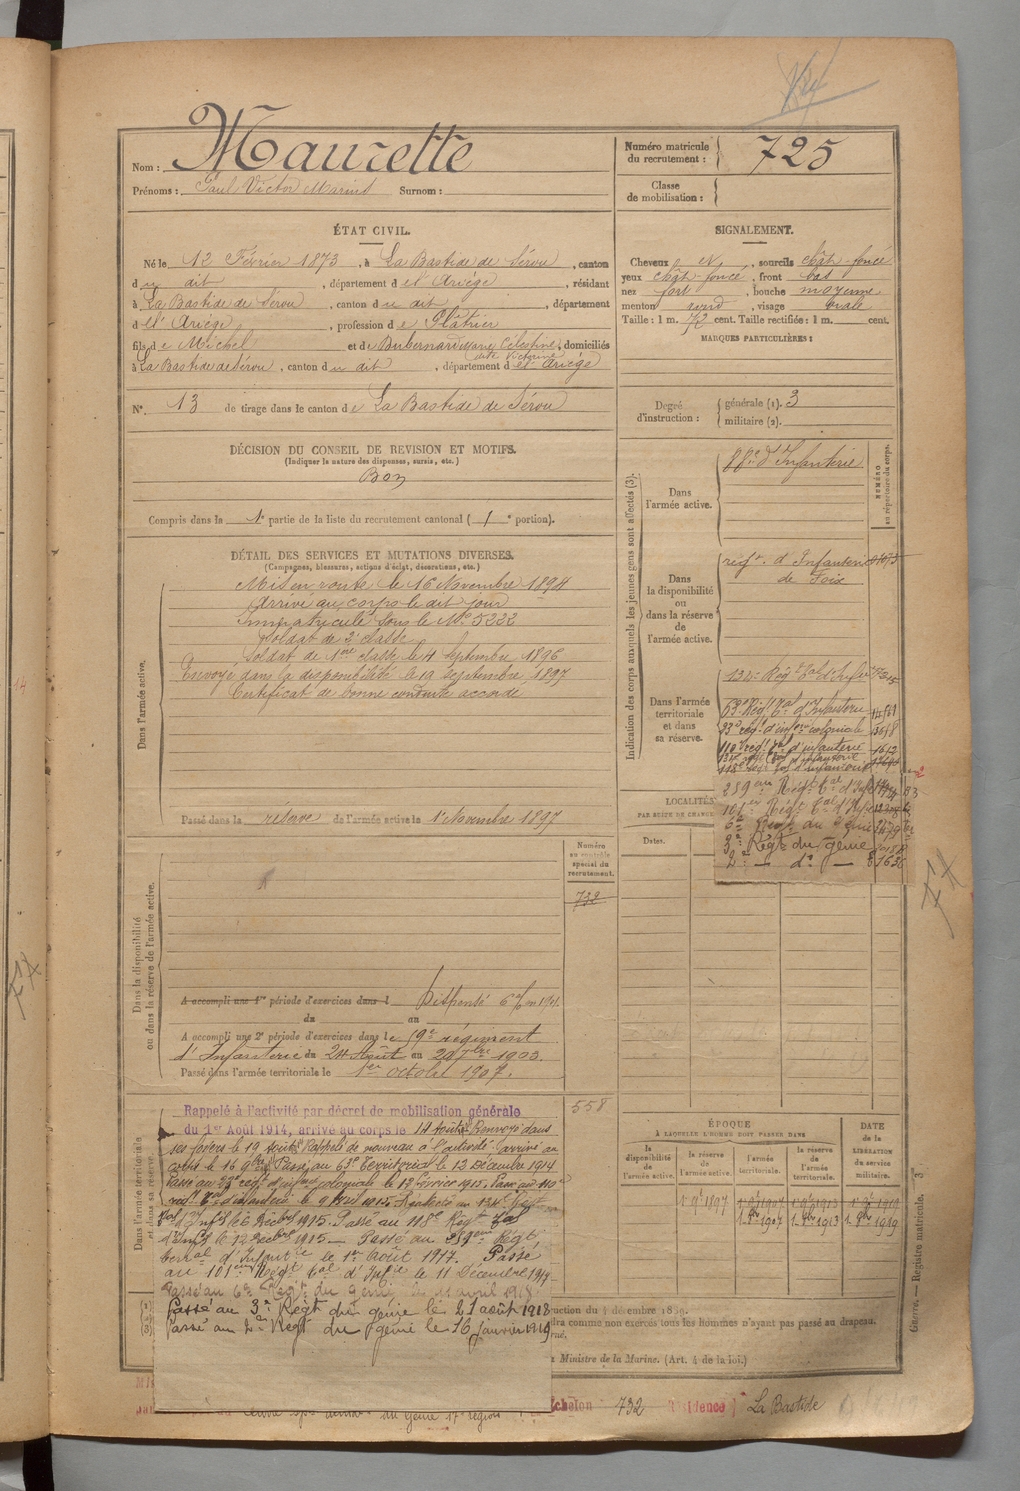 Nom : Maurette
Prénoms : Paul Victor Marius Surnom :
Numéro matricule du recrutement : 725
Classe de mobilisation :
ÉTAT CIVIL.
Né le 12 Février 1873, à La Bastide de Sérou, canton
du dit, département de l'Ariège, résidant
à La Bastide de Sérou, canton du dit, département
de l'Ariège, profession de Plâtrier
fils de Michel et de Dubernard Marie Célestine, domiciliés
dite Victorine
à La Bastide de Sérou, canton du dit, département de l'Ariège
N° 13 de tirage dans le canton de La Bastide de Sérou
SIGNALEMENT.
Cheveux et, sourcils chât-foncé
yeux chât-foncé, front bas
nez fort, bouche moyenne
menton rond, visage ovale
Taille : 1 m. 72 cent. Taille rectifiée : 1 m. cent.
MARQUES PARTICULIÈRES :
Degré d'instruction : générale (1). 3
militaire (2).
DÉCISION DU CONSEIL DE REVISION ET MOTIFS.
(Indiquer la nature des dispenses, sursis, etc.)
Bon
Compris dans la 1e partie de la liste du recrutement cantonal ( 1e portion).
DÉTAIL DES SERVICES ET MUTATIONS DIVERSES.
(Campagnes, blessures, actions d'éclat, décorations, etc.)
Dans l'armée active.
Mis en route le 16 Novembre 1894
Arrivé au corps le dit jour
Immatriculé sous le No 5222
Soldat de 2e classe
Soldat de 1ère classe le 4 septembre 1896
Envoyé dans la disponibilité le 19 septembre 1897
Certificat de bonne conduite accordé
Passé dans la réserve de l'armée active le 1er Novembre 1897
Indication des corps auxquels les jeunes gens sont affectés (3).
NUMÉRO au répertoire du corps.
Dans l'armée active.
88e d'Infanterie
Dans la disponibilité ou dans la réserve de l'armée active.
régt. d'Infanterie
de Foix
Dans l'armée territoriale et dans sa réserve.
134e Rég. tal d'Infie
63e Régt tal d'Infanterie
23e régt d'infie coloniale
110e régt tal d'infanterie 1612
134e régt tal d'infanterie
118e régt tal d'infanterie
259ème Régt tal d'Infie
101er Régt tal d'Infie
6e Régt du génie
3e Régt du génie
2e — do —
LOCALITÉS
PAR SUITE DE CHANGE
Dates.
Numéro au contrôle spécial du recrutement.
732
Dans la disponibilité ou dans la réserve de l'armée active.
A accompli une 1re période d'exercices dans l Dispensé
du au
A accompli une 2e période d'exercices dans le 59e régiment
d'Infanterie du 24 Août au 20 7bre 1903
Passé dans l'armée territoriale le 1er octobre 1907.
558
Dans l'armée territoriale et dans sa réserve.
Rappelé à l'activité par décret de mobilisation générale
du 1er Août 1914, arrivé au corps le 14 Août. Renvoyé dans
ses foyers le 19 Août. Rappelé de nouveau à l'activité. Arrivé au
corps le 16 9bre. Passé au 63e Territorial le 13 Décembre 1914
Passé au 23e régt d'infie coloniale le 13 Février 1915. Passé au 110e
régt tal d'infanterie le 9 Mai 1915. Réintégré au 134e Régt
tal d'Infie le 6 Décbre 1915. Passé au 118e Régt tal
d'Infie le 12 Décbre 1915 — Passé au 259ème Régt
terral d'Infantie le 1er Août 1917. Passé
au 101ème Régt tal d'Infie le 11 Décembre 1917
Passé au 6e Régt du génie le avril 1918.
Passé au 3e Régt du génie le 21 août 1918
Passé au 2e Régt du génie le 16 janvier 1919
ÉPOQUE
À LAQUELLE L'HOMME DOIT PASSER DANS
la disponibilité de l'armée active.
la réserve de l'armée active.
l'armée territoriale.
la réserve de l'armée territoriale.
DATE de la LIBÉRATION du service militaire.
1er 9bre 1897 1er 9bre 1907 1er 9bre 1913 1er 9bre 1919
1er 8bre 1907 1er 8bre 1913 1er 8bre 1919
uction du 4 décembre 1889.
dra comme non exercés tous les hommes n'ayant pas passé au drapeau.
Ministre de la Marine. (Art. 4 de la loi.)
Guerre. — Registre matricule.
du Génie 17e région
Echelon 732 Résidence La Bastide